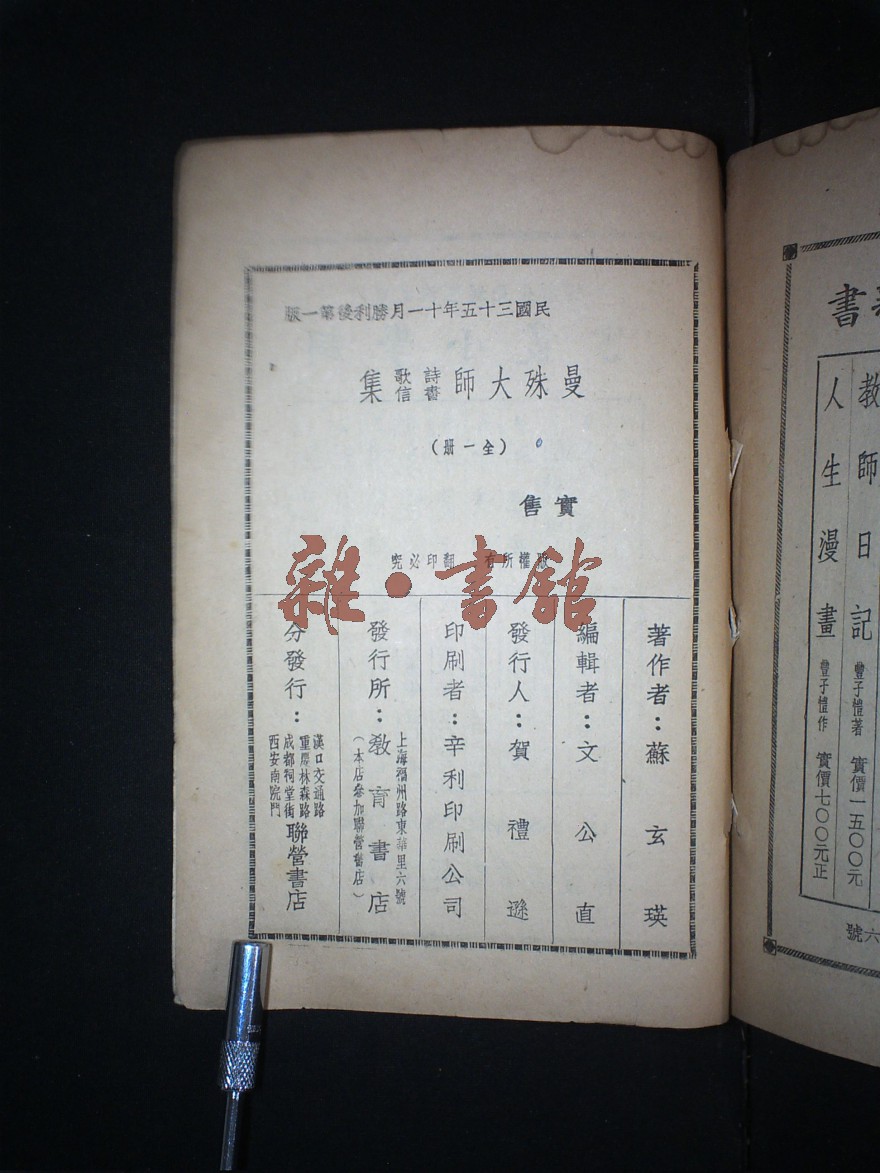 民國三十五年十一月勝利後第一版
曼殊大師詩歌書信集
（全一册）
實售
版權所有 翻印必究
著作者：蘇玄瑛
編輯者：文公直
發行人：賀禮遜
印刷者：辛利印刷公司
發行所：教育書店
上海福州路東華里六號
（本店參加聯營書店）
分發行：
漢口交通路
重慶林森路
成都祠堂街
西安南院門
聯營書店
雜·書館
書
教師日記 豐子愷著 實價一五〇〇元
人生漫畫 豐子愷作 實價七〇〇元正
六號